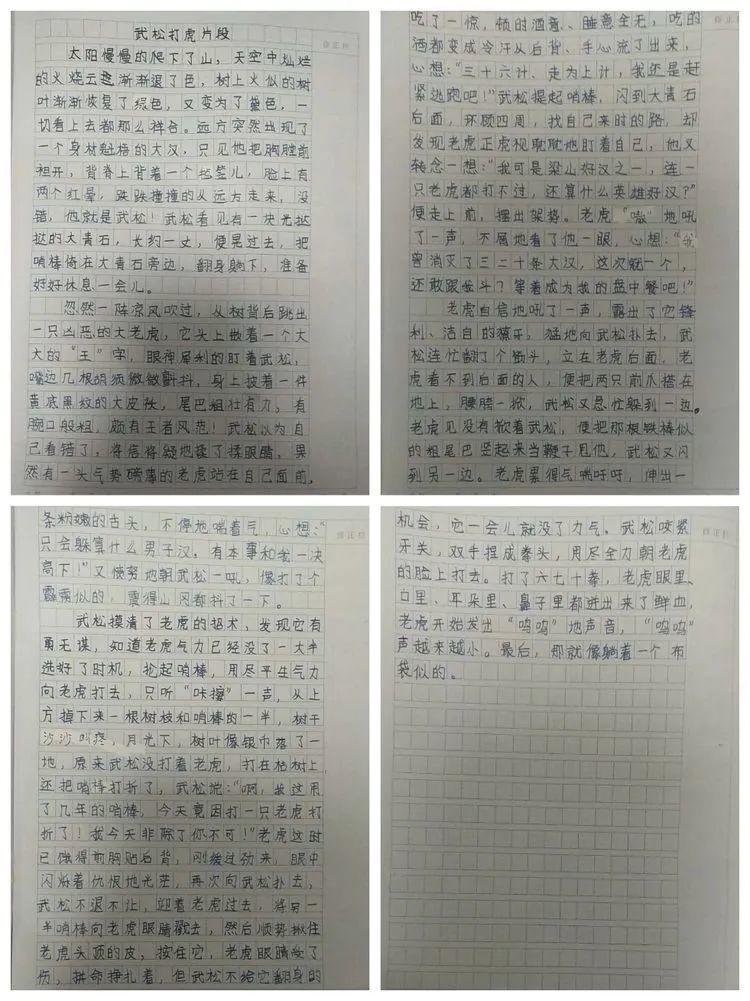 武松打虎片段
太阳慢慢的爬下了山，天空中灿烂
的火烧云渐渐退了色，树上火似的树
叶渐渐恢复了绿色，又变为了墨色，一
切看上去都那么祥合。远方突然出现了
一个身材魁梧的大汉，只见他把胸膛前
袒开，背脊上背着一个包儿，脸上有
两个红晕，跌跌撞撞的从远方走来，没
错，他就是武松！武松看见有一块光挞
挞的大青石，长约一丈，便晃过去，把
哨棒倚在大青石旁边，翻身躺下，准备
好好休息一会儿。
忽然一阵凉风吹过，从树背后跳出
一只凶恶的大老虎，它头上嵌着一个大
大的“王”字，眼神犀利的盯着武松，
嘴边几根胡须微微颤抖，身上披着一件
黄底黑纹的大皮袄，尾巴粗壮有力，有
碗口般粗，颇有王者风范！武松以为自
己看错了，将信将疑地揉了揉眼睛，果
然有一头气势磅薄的老虎站在自己面前，
吃了一惊，顿时酒意、睡意全无，吃的
酒都变成冷汗从后背、手心流了出来，
心想：“三十六计、走为上计，我还是赶
紧逃跑吧！”武松提起哨棒，闪到大青石
后面，环顾四周，找自己来时的路，却
发现老虎正虎视眈眈地盯着自己，他又
转念一想：“我可是梁山好汉之一，连一
只老虎都打不过，还算什么英雄好汉？”
便走上前，摆出架势。老虎“嗷”地吼
了一声，不屑地看了他一眼，心想：“我
曾消灭了三二十条大汉，这次就一个，
还敢跟我斗？等着成为我的盘中餐吧！”
老虎自信地吼了一声，露出了它锋
利、洁白的獠牙，猛地向武松扑去，武
松连忙翻了个跟头，立在老虎后面，老
虎看不到后面的人，便把两只前爪搭在
地上，腰胯一掀，武松又急忙躲到一边。
老虎见没有掀着武松，便把那根铁棒似
的粗尾巴竖起来当鞭子甩他，武松又闪
到另一边。老虎累得气喘吁吁，伸出一
条粉嫩的舌头，不停地喘着气，心想：“
只会躲算什么男子汉。有本事和我一决
高下！”又使劲地朝武松一吼，像打了个
霹雳似的，震得山冈都抖了一下。
武松摸清了老虎的招术，发现它有
勇无谋，知道老虎气力已经没了一大半
选好了时机，抡起哨棒，用尽平生气力
向老虎打去，只听“咔擦”一声，从上
方掉下来一根树枝和哨棒的一半，树干
沙沙叫疼，月光下，树叶像银币落了一
地，原来武松没打着老虎，打在枯树上
还把哨棒打折了，武松说：“啊，我这用
了几年的哨棒，今天竟因打一只老虎打
折了！我今天非除了你不可！”老虎这时
已饿得前胸贴后背，刚缓过劲来，眼中
闪烁着仇恨地光茫，再次向武松扑去，
武松不退不让，迎着老虎过去，将另一
半哨棒向老虎眼睛戳去，然后顺势揪住
老虎头顶的皮，按住它，老虎眼睛受了
伤，拼命挣扎着，但武松不给它翻身的
机会，它一会儿就没了力气。武松咬紧
牙关，双手捏成拳头，用尽全力朝老虎
的脸上打去。打了六七十拳，老虎眼里、
口里、耳朵里、鼻子里都迸出来了鲜血，
老虎开始发出“呜呜”地声音，“呜呜”
声越来越小。最后，那就像躺着一个布
袋似的。